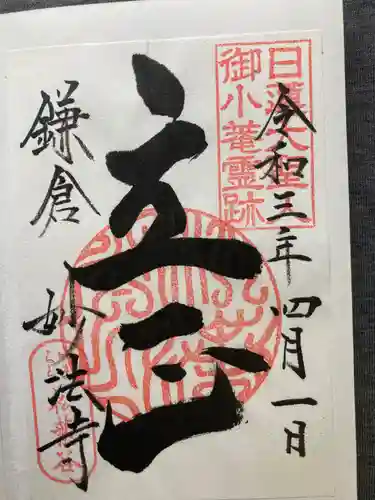 日蓮大聖
御小菴靈跡
令和三年四月一日
立正
鎌倉 妙法寺